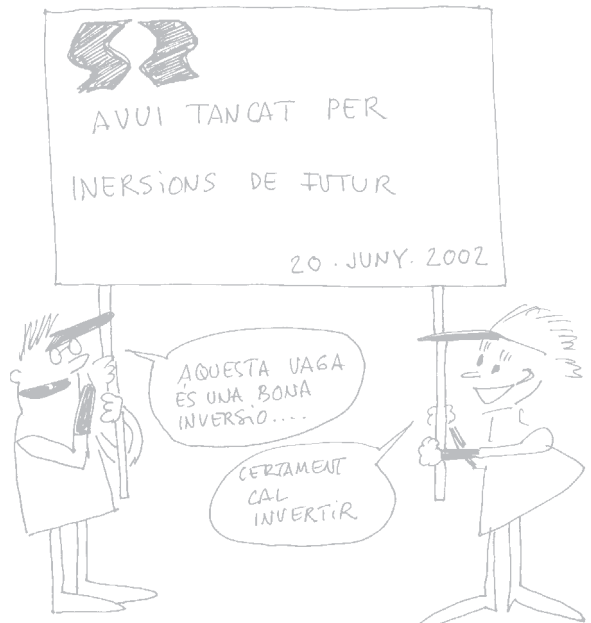 AVUI TANCAT PER
INERSiONS DE FUTUR
20 . JUNY . 2002
AQUESTA VAGA
ÉS UNA BONA
INVERSiO....
CERTAMENT
CAL
INVERTiR